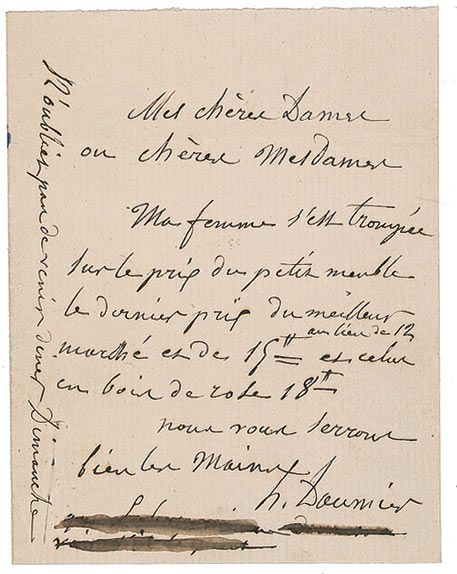 Mes chères Dames
ou chères Mesdames
Ma femme s'est trompée
sur le prix du petit meuble
le dernier prix du meilleur
au lieu de 12
marché est de 15ᶠᶠ et celui
en bois de rose 18ᶠᶠ
nous vous serrons
bien les Mains
h. Daumier
N'oubliez pas de venir diner Dimanche